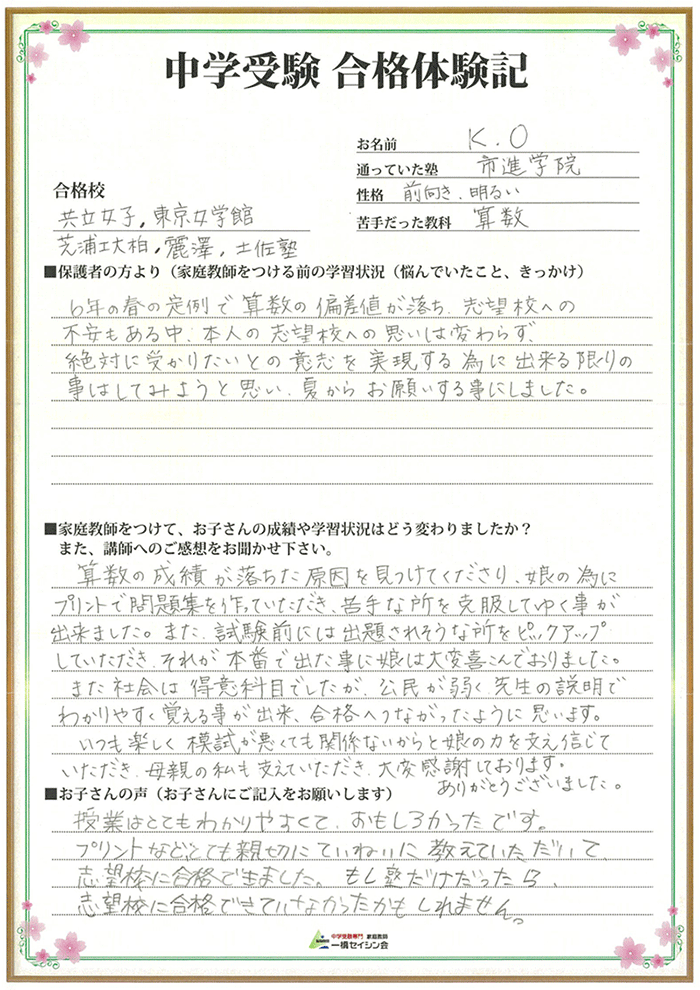 中学受験 合格体験記
お名前 K.O
通っていた塾 市進学院
性格 前向き、明るい
苦手だった教科 算数
合格校
共立女子，東京女学館
芝浦工大柏，麗澤，土佐塾
■保護者の方より（家庭教師をつける前の学習状況（悩んでいたこと、きっかけ）
6年の春の定例で算数の偏差値が落ち、志望校への
不安もある中、本人の志望校への思いは変わらず、
絶対に受かりたいとの意志を実現する為に出来る限りの
事はしてみようと思い、夏からお願いする事にしました。
■家庭教師をつけて、お子さんの成績や学習状況はどう変わりましたか？
また、講師へのご感想をお聞かせ下さい。
算数の成績が落ちた原因を見つけてくださり、娘の為に
プリントで問題集を作っていただき、苦手な所を克服してゆく事が
出来ました。また、試験前には出題されそうな所をピックアップ
していただき、それが本番で出た事に娘は大変喜こんでおりました。
また社会は得意科目でしたが、公民が弱く、先生の説明で
わかりやすく覚える事が出来、合格へつながったように思います。
いつも楽しく模試が悪くても関係ないからと娘の力を支え信じて
いただき、母親の私も支えていただき、大変感謝しております。
ありがとうございました。
■お子さんの声（お子さんにご記入をお願いします）
授業はとてもわかりやすくて、おもしろかったです。
プリントなどとても親切にていねいに教えていただいて、
志望校に合格できました。もし塾だけだったら、
志望校に合格できていなかったかもしれません。
中学受験専門 家庭教師
一橋セイシン会